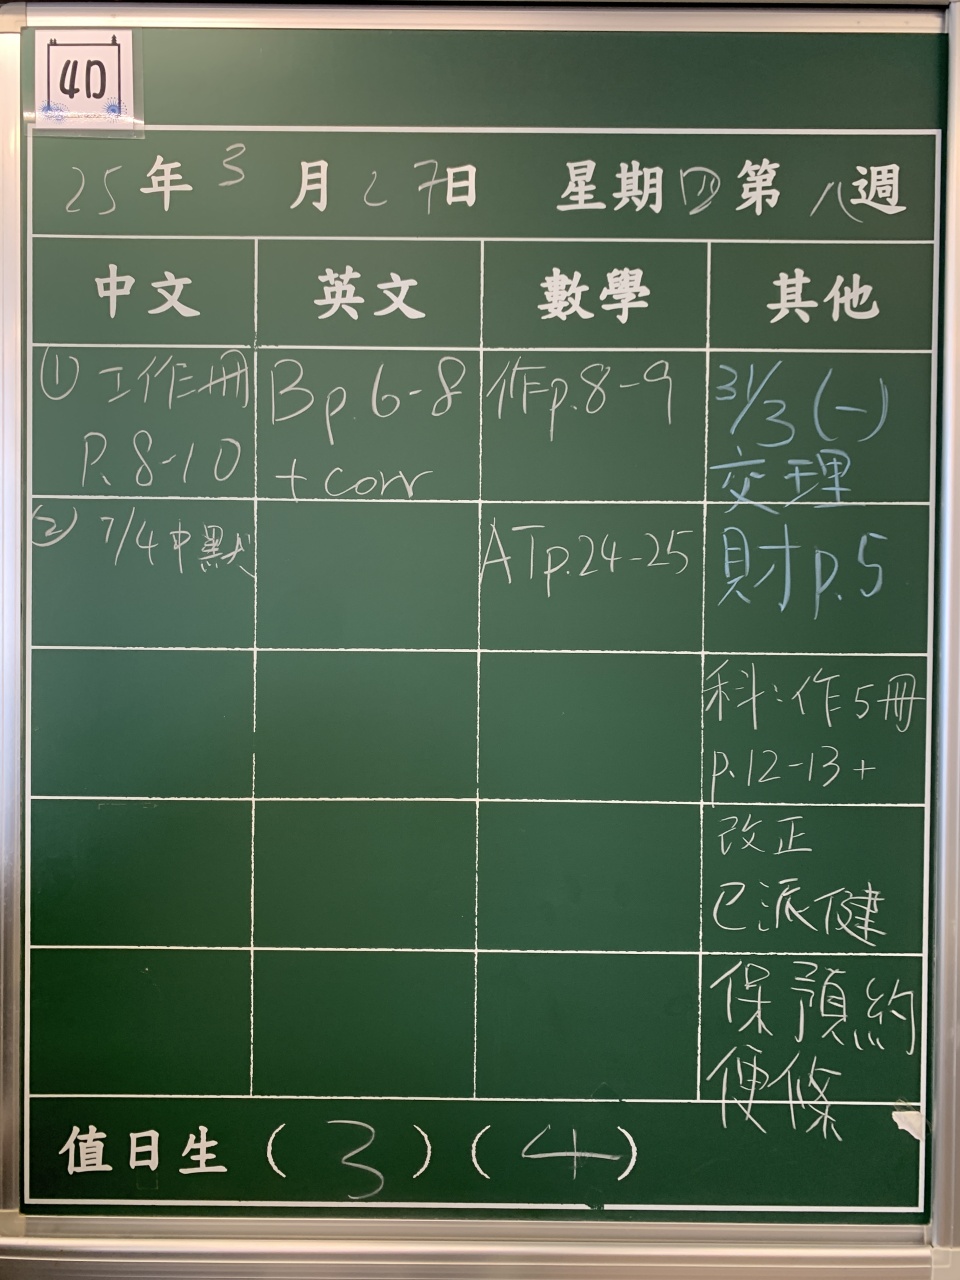 4D
25年3月27日 星期四第八週
中文 英文 數學 其他
① 工作冊
P.8-10
② 7/4中默
Bp.6-8
+corr
作p.8-9
ATp.24-25
31/3(一)
交理
財p.5
科:作5冊
p.12-13+
改正
已派健
保預約
便條
值日生(3)(4)